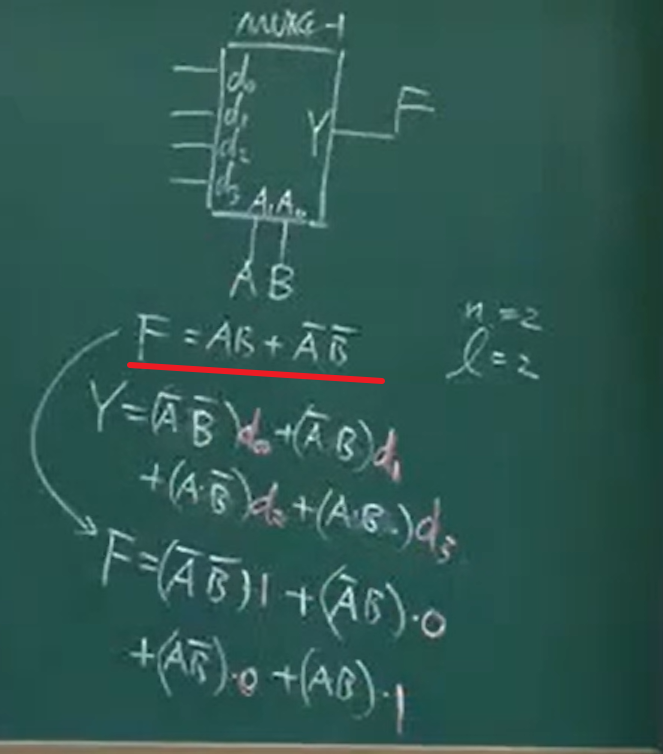 MUX4-1
d₀
d₁
d₂
d₃
Y
F
A₁ A₀
A B
F = AB + A̅ B̅
n = 2
l = 2
Y = (A̅ B̅)d₀ + (A̅ B)d₁
+ (A·B̅)d₂ + (A·B)d₃
F = (A̅ B̅)1 + (A̅B)·0
+ (AB̅)·0 + (AB)·1